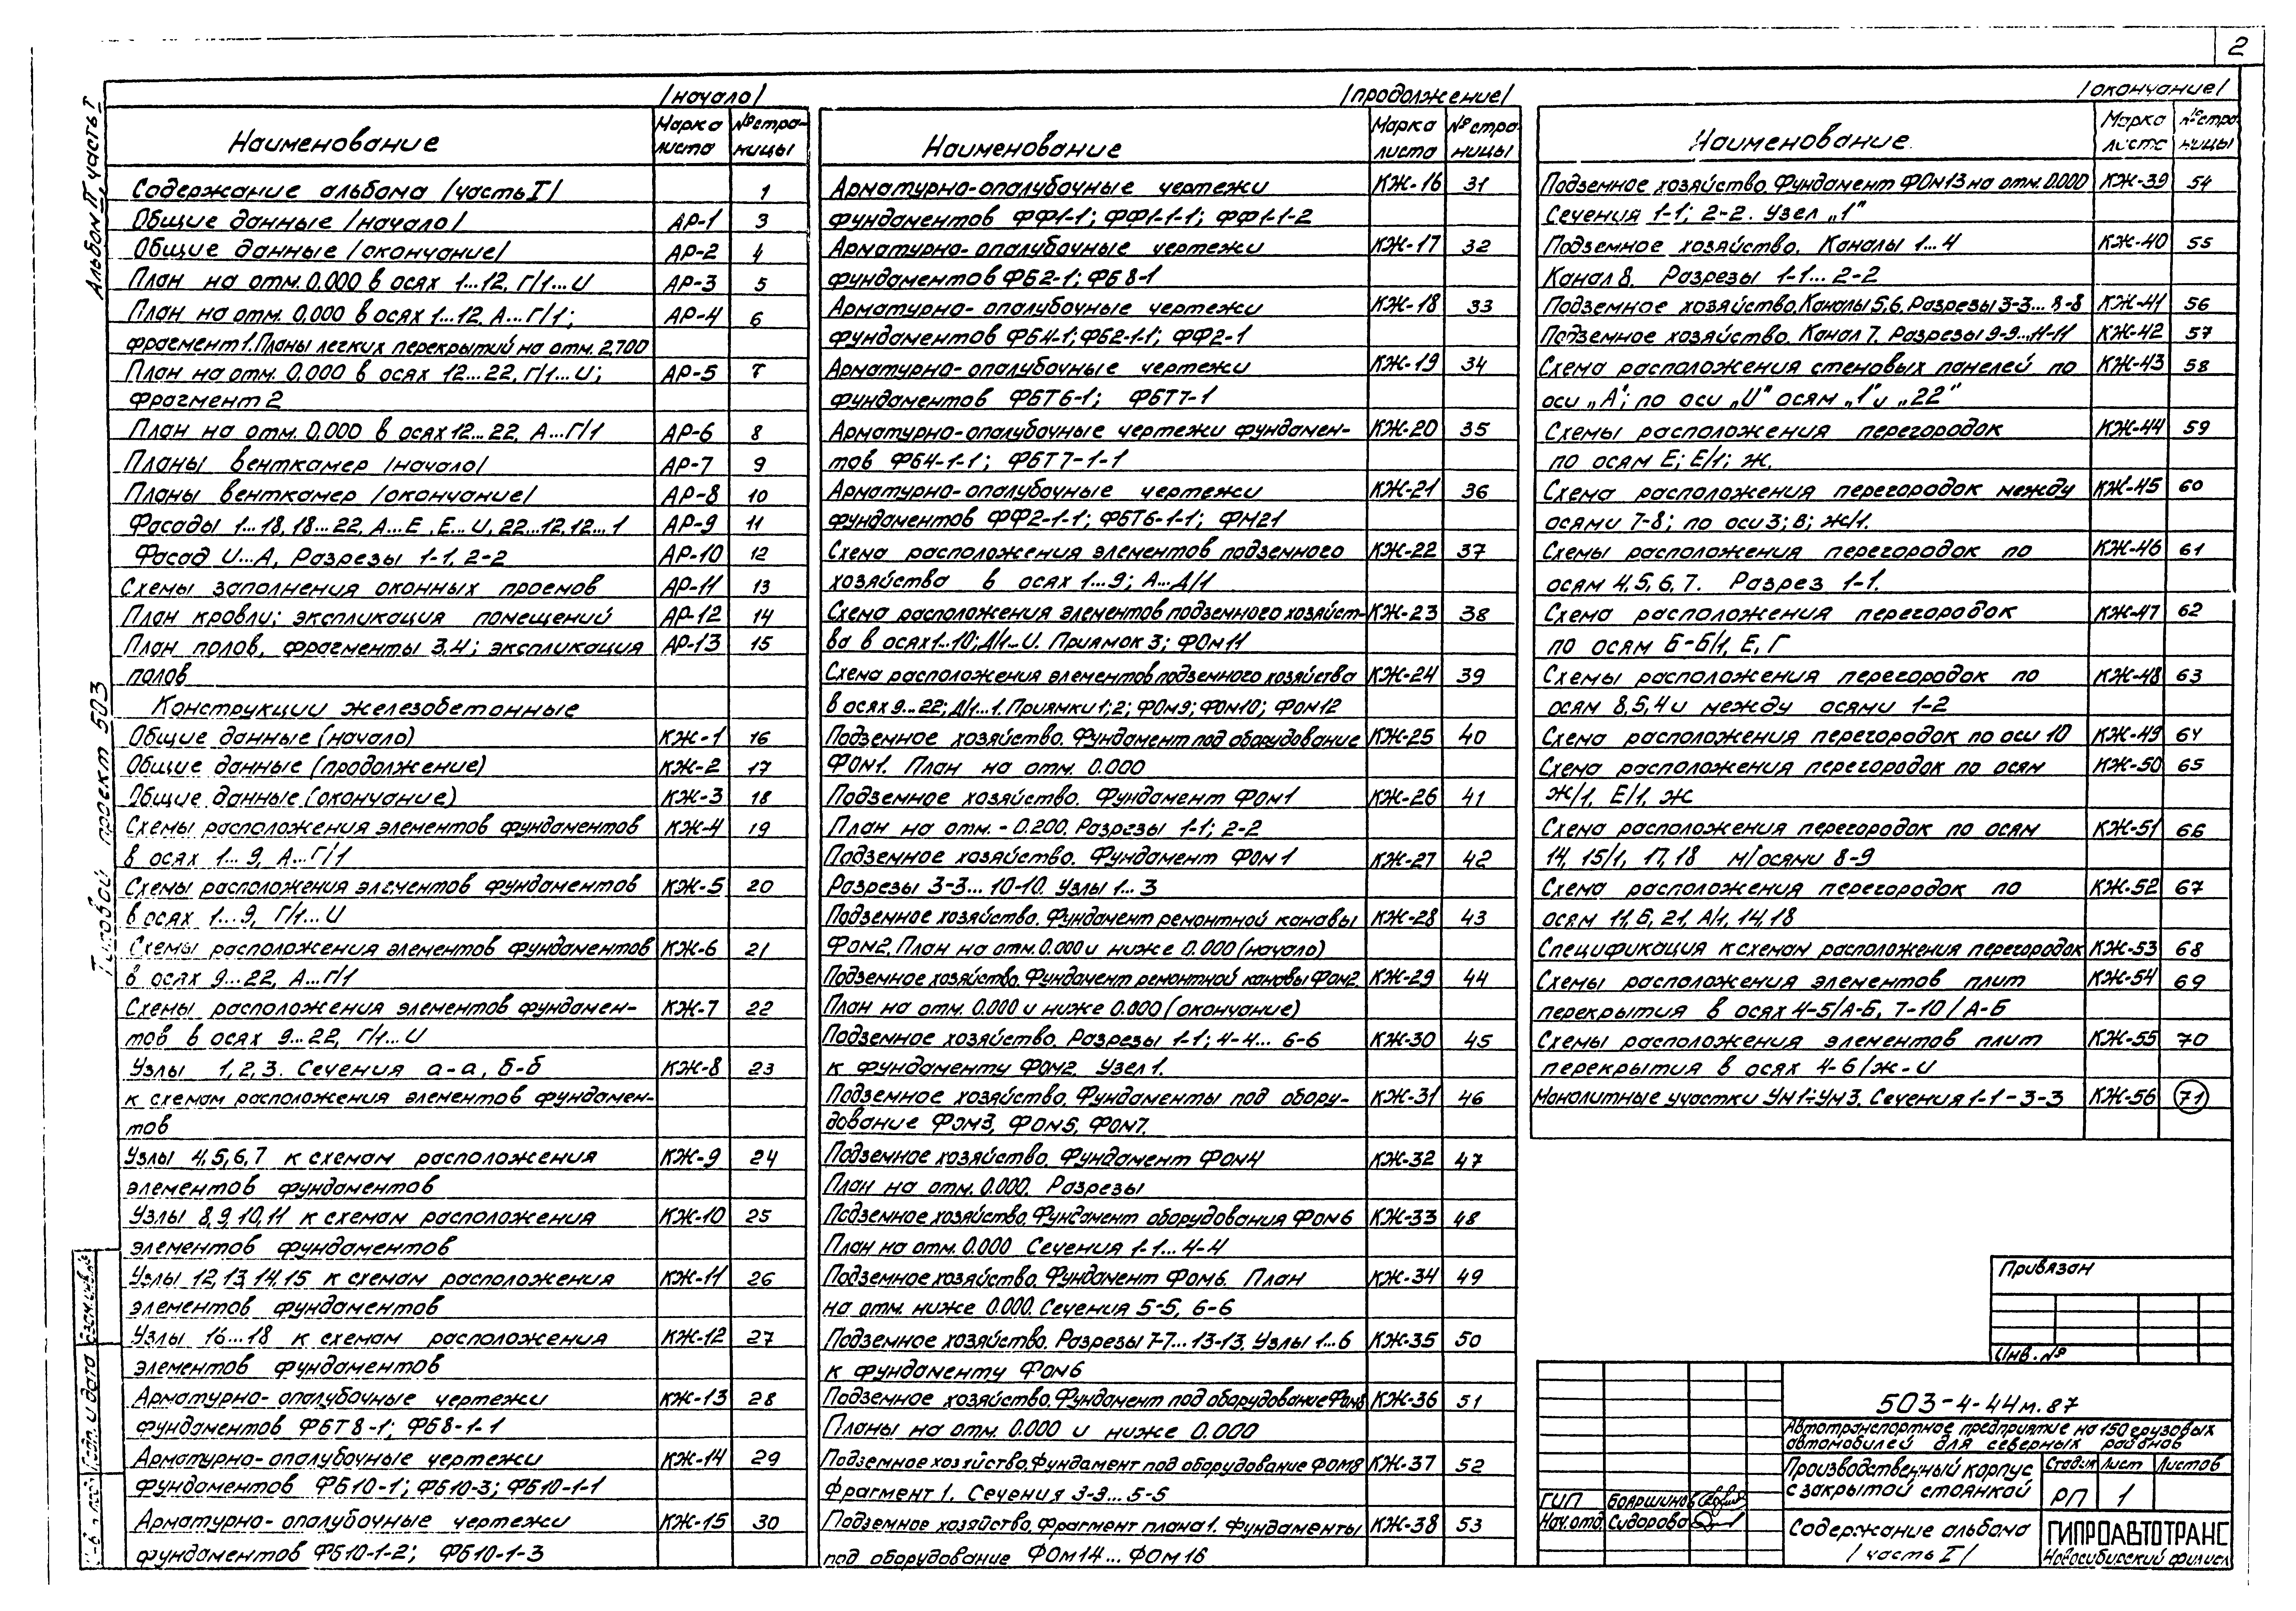 2
Альбом II, часть I
Типовой проект 503
/начало/
Наименование Марка листа № страницы
Содержание альбома /часть I/ 1
Общие данные /начало/ АР-1 3
Общие данные /окончание/ АР-2 4
План на отм. 0.000 в осях 1...12, Г/1...И АР-3 5
План на отм. 0.000 в осях 1...12, А...Г/1; АР-4 6
фрагмент 1. Планы легких перекрытий на отм. 2,700
План на отм. 0.000 в осях 12...22, Г/1...И; АР-5 7
фрагмент 2
План на отм. 0.000 в осях 12...22, А...Г/1 АР-6 8
Планы венткамер /начало/ АР-7 9
Планы венткамер /окончание/ АР-8 10
Фасады 1...18, 18...22, А...Е, Е...И, 22...12, 12...1 АР-9 11
Фасад И...А, Разрезы 1-1, 2-2 АР-10 12
Схемы заполнения оконных проемов АР-11 13
План кровли; экспликация помещений АР-12 14
План полов, фрагменты 3,4; экспликация АР-13 15
полов
Конструкции железобетонные
Общие данные (начало) КЖ-1 16
Общие данные (продолжение) КЖ-2 17
Общие данные (окончание) КЖ-3 18
Схемы расположения элементов фундаментов КЖ-4 19
в осях 1...9, А...Г/1
Схемы расположения элементов фундаментов КЖ-5 20
в осях 1...9, Г/1...И
Схемы расположения элементов фундаментов КЖ-6 21
в осях 9...22, А...Г/1
Схемы расположения элементов фундамен- КЖ-7 22
тов в осях 9...22, Г/1...И
Узлы 1, 2, 3. Сечения а-а, б-б КЖ-8 23
к схемам расположения элементов фундамен-
тов
Узлы 4,5,6,7 к схемам расположения КЖ-9 24
элементов фундаментов
Узлы 8,9,10,11 к схемам расположения КЖ-10 25
элементов фундаментов
Узлы 12,13,14,15 к схемам расположения КЖ-11 26
элементов фундаментов
Узлы 16...18 к схемам расположения КЖ-12 27
элементов фундаментов
Арматурно-опалубочные чертежи КЖ-13 28
фундаментов ФБТ8-1; ФБ8-1-1
Арматурно-опалубочные чертежи КЖ-14 29
фундаментов ФБ10-1; ФБ10-3; ФБ10-1-1
Арматурно-опалубочные чертежи КЖ-15 30
фундаментов ФБ10-1-2; ФБ10-1-3
/продолжение/
Наименование Марка листа № страницы
Арматурно-опалубочные чертежи КЖ-16 31
фундаментов ФФ1-1; ФФ1-1-1; ФФ1-1-2
Арматурно-опалубочные чертежи КЖ-17 32
фундаментов ФБ2-1; ФБ8-1
Арматурно-опалубочные чертежи КЖ-18 33
фундаментов ФБ4-1; ФБ2-1-1; ФФ2-1
Арматурно-опалубочные чертежи КЖ-19 34
фундаментов ФБТ6-1; ФБТ7-1
Арматурно-опалубочные чертежи фундамен- КЖ-20 35
тов ФБ4-1-1; ФБТ7-1-1
Арматурно-опалубочные чертежи КЖ-21 36
фундаментов ФФ2-1-1; ФБТ6-1-1; ФМ21
Схема расположения элементов подземного КЖ-22 37
хозяйства в осях 1...9; А...Д/1
Схема расположения элементов подземного хозяйст- КЖ-23 38
ва в осях 1...10; Д/1...И. Приямок 3; ФОм11
Схема расположения элементов подземного хозяйства КЖ-24 39
в осях 9...22; Д/1...1. Приямки 1; 2; ФОм9; ФОм10; ФОм12
Подземное хозяйство. Фундамент под оборудование КЖ-25 40
ФОм1. План на отм. 0.000
Подземное хозяйство. Фундамент ФОм1 КЖ-26 41
План на отм. -0.200. Разрезы 1-1; 2-2
Подземное хозяйство. Фундамент ФОм1 КЖ-27 42
Разрезы 3-3...10-10. Узлы 1...3
Подземное хозяйство. Фундамент ремонтной канавы КЖ-28 43
ФОм2. План на отм. 0.000 и ниже 0.000 (начало)
Подземное хозяйство. Фундамент ремонтной канавы ФОм2 КЖ-29 44
План на отм. 0.000 и ниже 0.000 (окончание)
Подземное хозяйство. Разрезы 1-1; 4-4...6-6 КЖ-30 45
к фундаменту ФОм2. Узел 1.
Подземное хозяйство. Фундаменты под обору- КЖ-31 46
дование ФОм3, ФОм5, ФОм7.
Подземное хозяйство. Фундамент ФОм4 КЖ-32 47
План на отм. 0.000. Разрезы
Подземное хозяйство. Фундамент оборудования ФОм6 КЖ-33 48
План на отм. 0.000 Сечения 1-1...4-4
Подземное хозяйство. Фундамент ФОм6. План КЖ-34 49
на отм. ниже 0.000. Сечения 5-5, 6-6
Подземное хозяйство. Разрезы 7-7...13-13. Узлы 1...6 КЖ-35 50
к фундаменту ФОм6
Подземное хозяйство. Фундамент под оборудование ФОм8 КЖ-36 51
Планы на отм. 0.000 и ниже 0.000
Подземное хозяйство. Фундамент под оборудование ФОм8 КЖ-37 52
Фрагмент 1. Сечения 3-3...5-5
Подземное хозяйство. Фрагмент плана 1. Фундаменты КЖ-38 53
под оборудование ФОм14...ФОм16
/окончание/
Наименование Марка листа № страницы
Подземное хозяйство. Фундамент ФОм13 на отм. 0.000 КЖ-39 54
Сечения 1-1; 2-2. Узел „1"
Подземное хозяйство. Каналы 1...4 КЖ-40 55
Канал 8. Разрезы 1-1...2-2
Подземное хозяйство. Каналы 5,6. Разрезы 3-3...8-8 КЖ-41 56
Подземное хозяйство. Канал 7. Разрезы 9-9...11-11 КЖ-42 57
Схема расположения стеновых панелей по КЖ-43 58
оси „А"; по оси „И" осям „1" и „22"
Схемы расположения перегородок КЖ-44 59
по осям Е; Е/1; Ж.
Схема расположения перегородок между КЖ-45 60
осями 7-8; по оси 3; В; Ж/1.
Схемы расположения перегородок по КЖ-46 61
осям 4, 5, 6, 7. Разрез 1-1.
Схема расположения перегородок КЖ-47 62
по осям Б-Б/1, Е, Г
Схемы расположения перегородок по КЖ-48 63
осям 8,5,4 и между осями 1-2
Схема расположения перегородок по оси 10 КЖ-49 64
Схема расположения перегородок по осям КЖ-50 65
Ж/1, Е/1, Ж
Схема расположения перегородок по осям КЖ-51 66
14, 15/1, 17, 18 м/осями 8-9
Схема расположения перегородок по КЖ-52 67
осям 11, Б, 21, А/1, 14, 18
Спецификация к схемам расположения перегородок КЖ-53 68
Схемы расположения элементов плит КЖ-54 69
перекрытия в осях 4-5/А-Б, 7-10/А-Б
Схемы расположения элементов плит КЖ-55 70
перекрытия в осях 4-6/Ж-И
Монолитные участки Ум1÷Ум3. Сечения 1-1 - 3-3 КЖ-56 71
Привязан
Инв. №
503-4-44м.87
Автотранспортное предприятие на 150 грузовых
автомобилей для северных районов
Производственный корпус
с закрытой стоянкой
Стадия Лист Листов
РП 1
ГИП Бояршинов
Нач.отд. Сидорова
Содержание альбома
/часть I/
ГИПРОАВТОТРАНС
Новосибирский филиал
Взам.инв.№
Подп. и дата